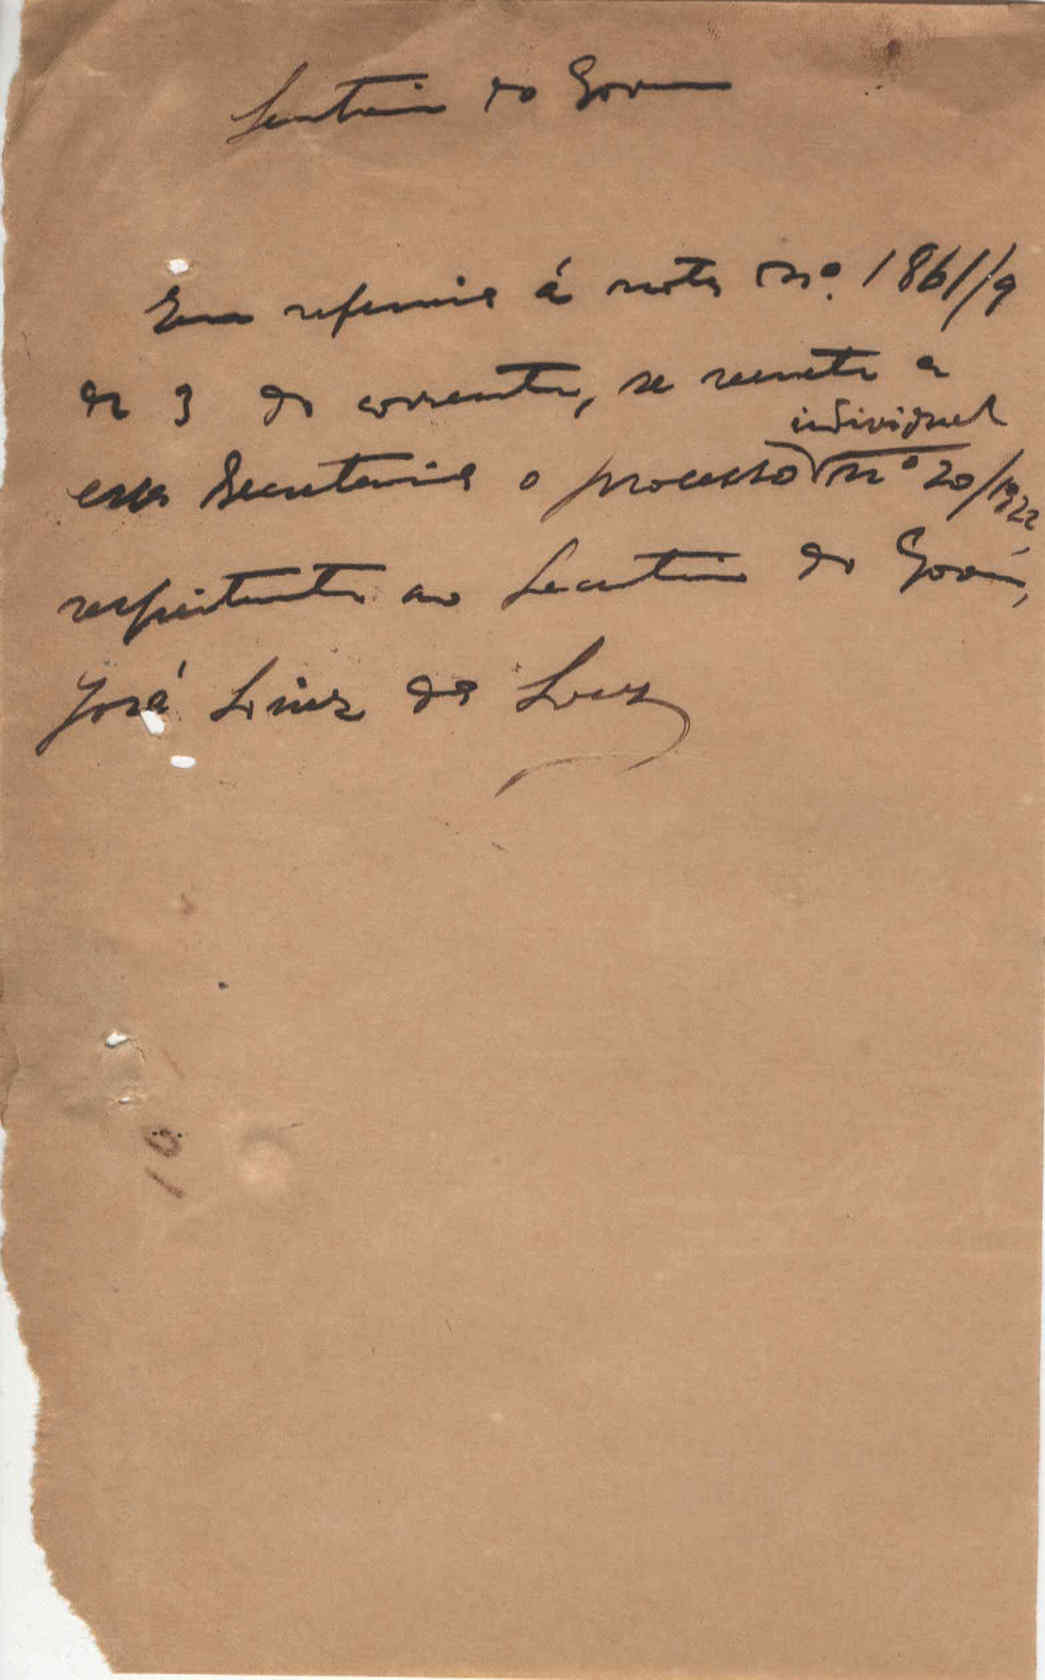 Secretaria do Governo
Em referencia á nota nº. 1861/9
de 3 do corrente, se remete a
individual
essa Secretaria o processo nº 20/1922
respeitante ao Secretario do Govêrno,
José Luiz da Luz
10